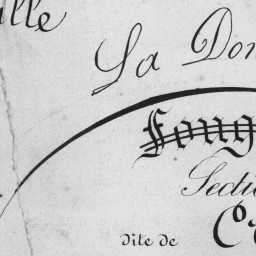 ille
La Don
Foug
Secti
C
dite de